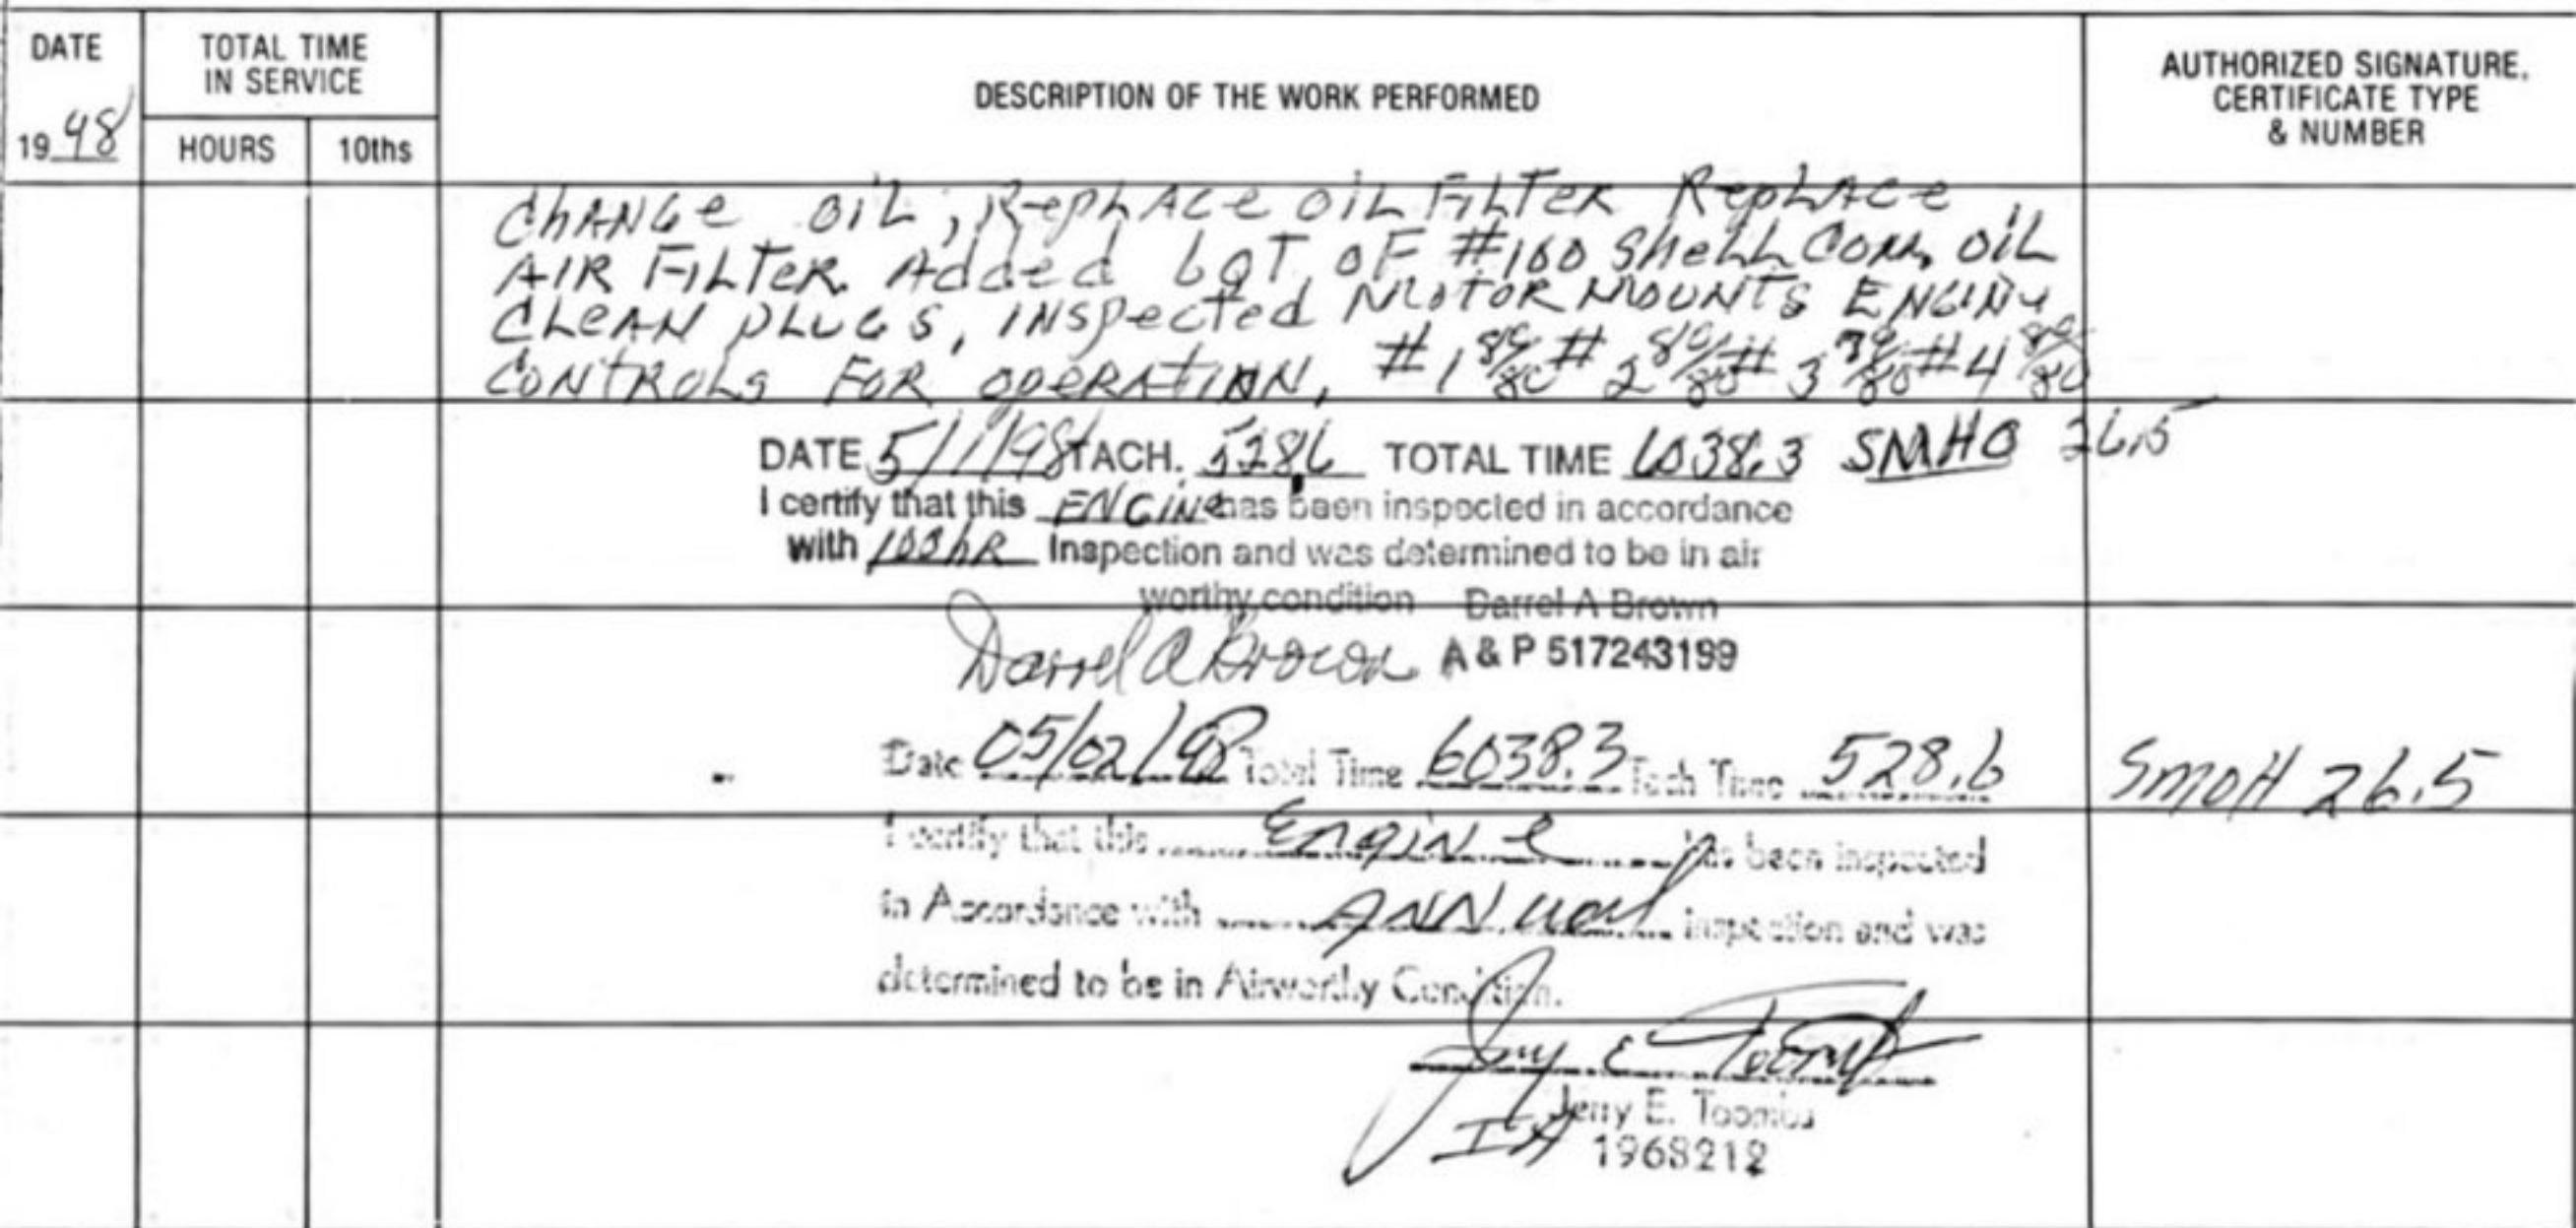 DATE
19 98
TOTAL TIME
IN SERVICE
HOURS
10ths
DESCRIPTION OF THE WORK PERFORMED
AUTHORIZED SIGNATURE,
CERTIFICATE TYPE
& NUMBER
CHANGe OiL, RePLACe OiL FiLTeR RePLACe
AIR FiLTeR. Added 6QT OF #100 SHeLL Com. OiL
CLeAN PLUGS, INSpected MOTOR MOUNTS ENGINe
CONTROLS FOR OPERATION, #1 /80 #2 /80 #3 /80 #4 /80
DATE 5/1/98 TACH. 528.6 TOTAL TIME 6038.3 SMHO 26.5
I certify that this ENGINe has been inspected in accordance
with 100hR Inspection and was determined to be in air
worthy condition Darrel A Brown
Darrel A Brown A & P 517243199
Date 05/02/98 Total Time 6038.3 Tach Time 528.6 SMOH 26.5
I certify that this Engine has been inspected
in Accordance with ANNual inspection and was
determined to be in Airworthy Condition.
Jerry E Toombs
Jerry E. Toombs
IA 1968212